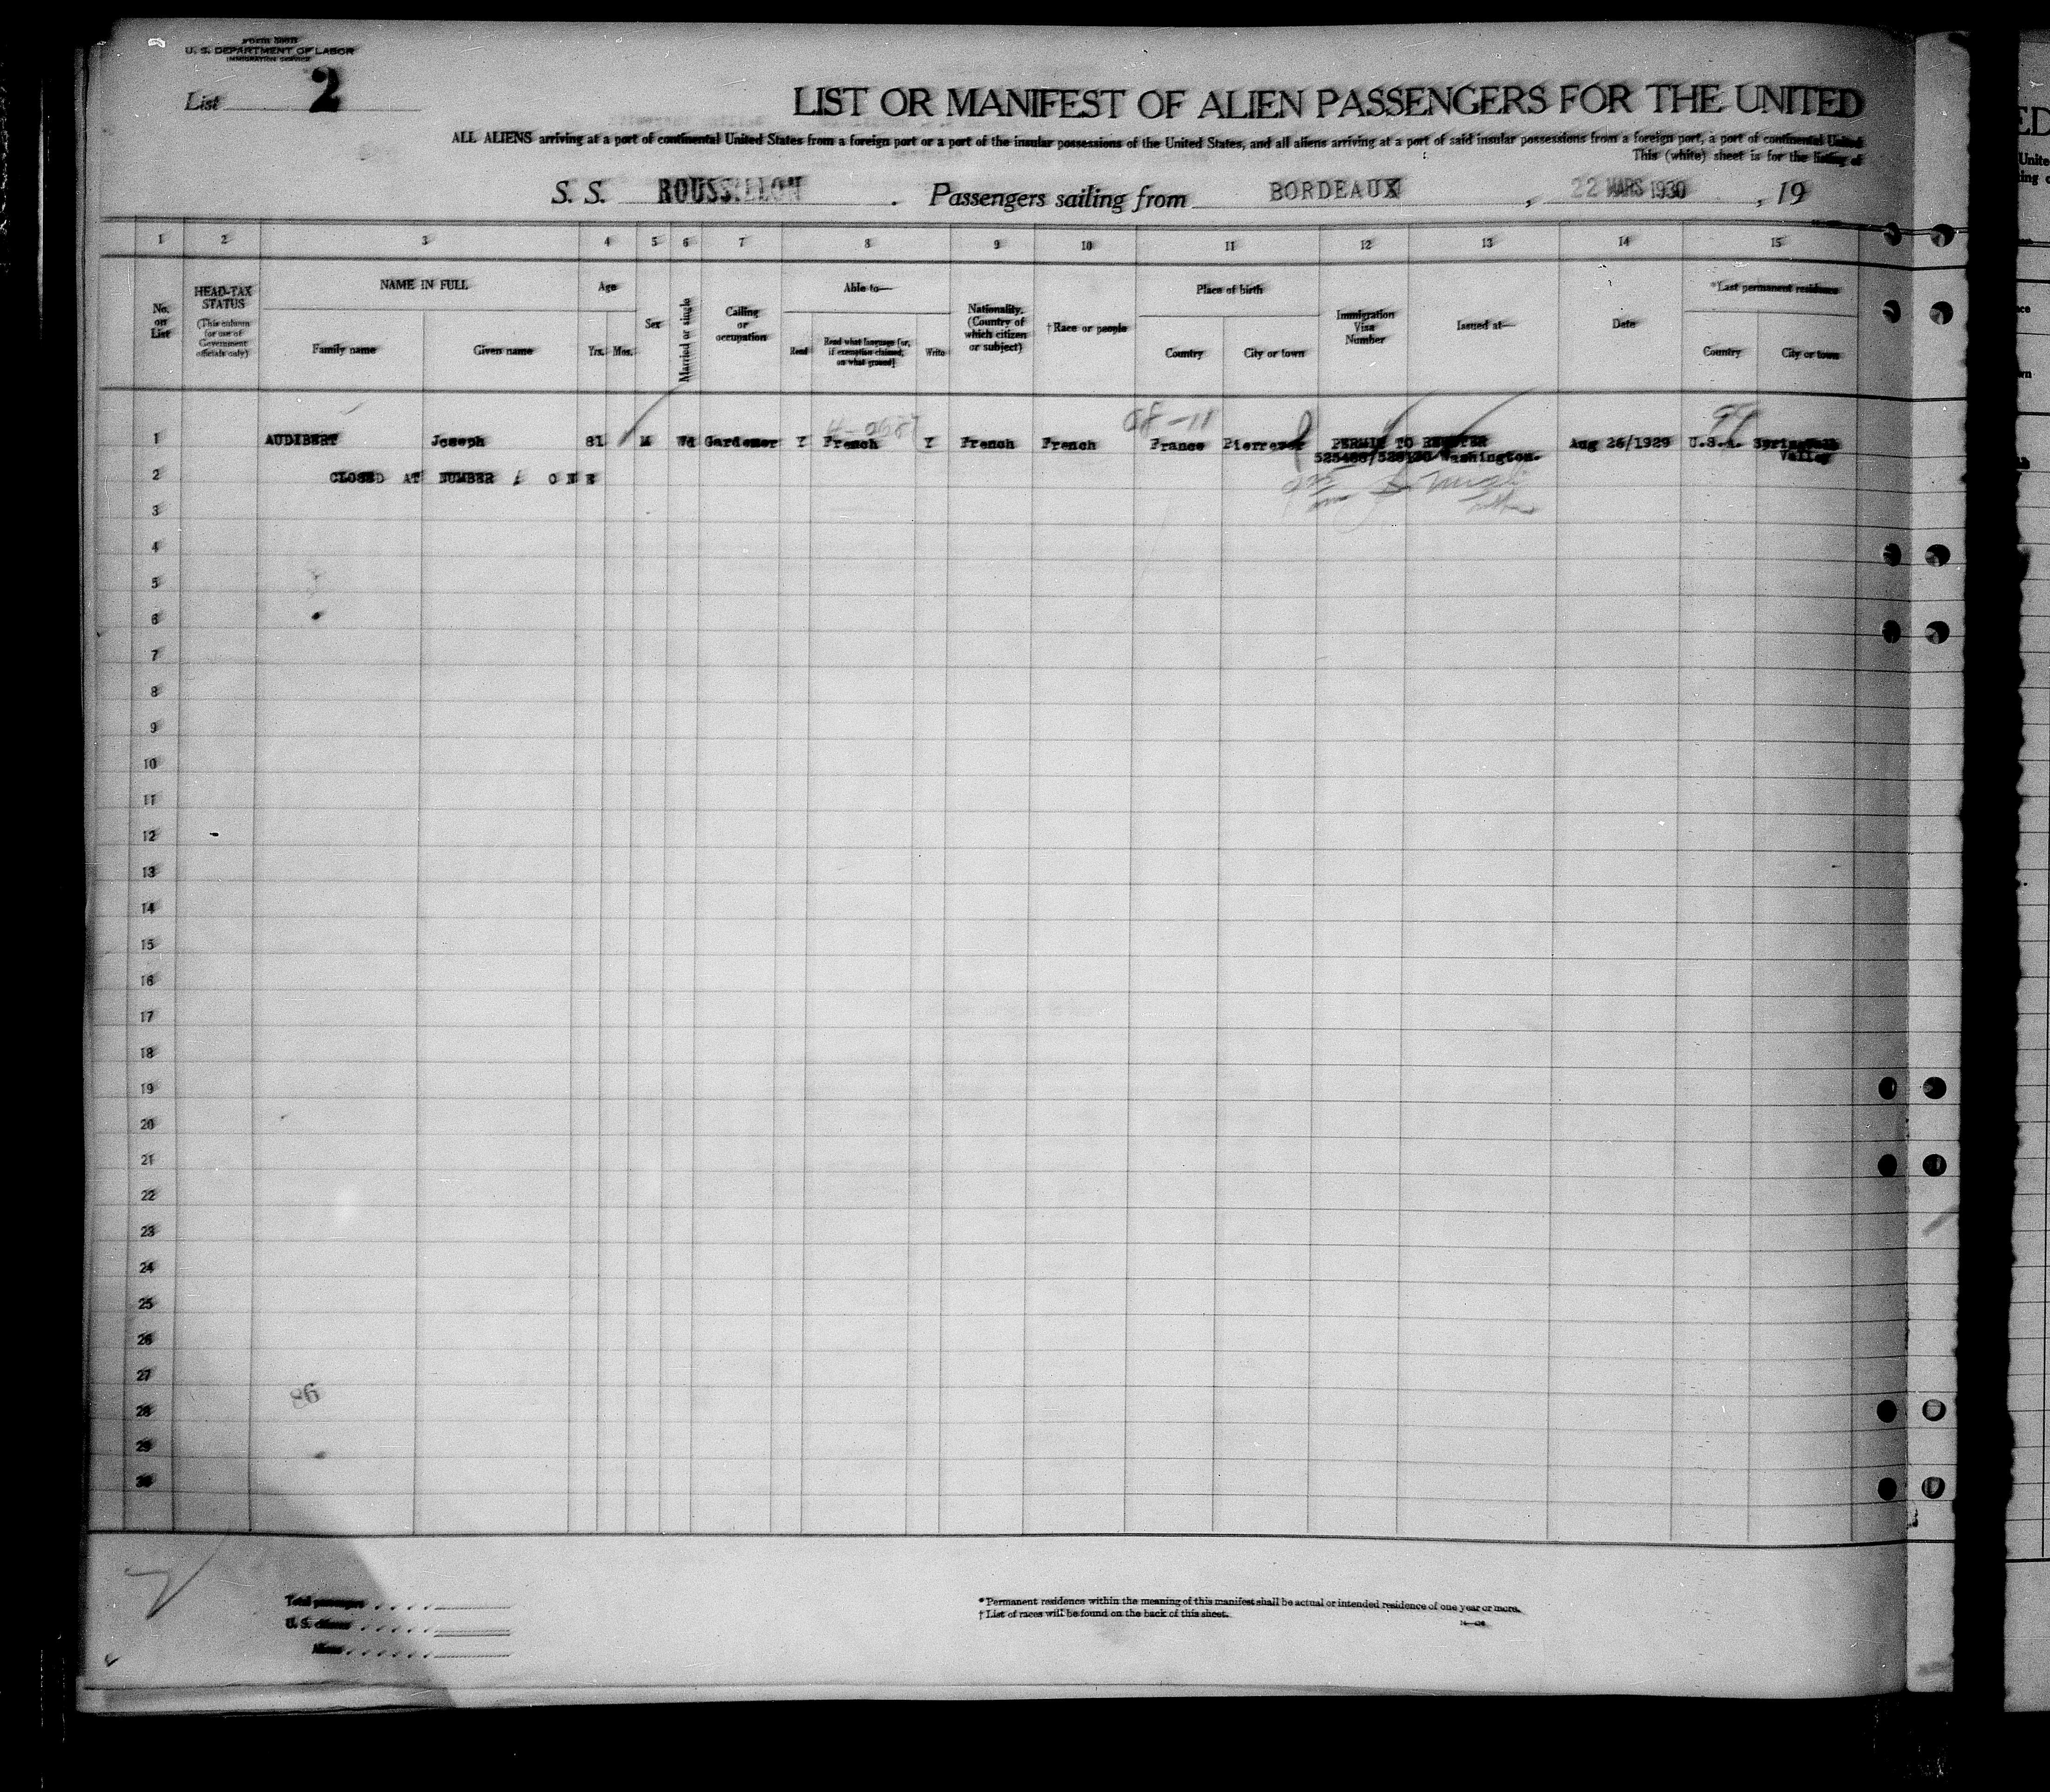 U. S. DEPARTMENT OF LABOR
IMMIGRATION SERVICE
List 2
LIST OR MANIFEST OF ALIEN PASSENGERS FOR THE UNITED
ALL ALIENS arriving at a port of continental United States from a foreign port or a part of the insular possessions of the United States, and all aliens arriving at a port of said insular possessions from a foreign port, a port of continental United
This (white) sheet is for the listing of
S. S. ROUSSILLON . Passengers sailing from BORDEAUX , 22 MARS 1930 , 19
1 2 3 4 5 6 7 8 9 10 11 12 13 14 15
No. on List
HEAD-TAX STATUS
(This column for use of Government officials only)
NAME IN FULL
Family name Given name
Age
Yrs. Mos.
Sex
Married or single
Calling or occupation
Able to—
Read Read what language [or, if exemption claimed, on what ground] Write
Nationality. (Country of which citizen or subject)
†Race or people
Place of birth
Country City or town
Immigration Visa Number
Issued at—
Date
*Last permanent residence
Country City or town
68-11
1 AUDIBERT Joseph 81 M Wd Gardener Y French Y French French France PERMIT TO REENTER Aug 26/1929 U.S.A. Spring
Washington. Valley
2 CLOSED AT NUMBER 1 ONE
3
4
5
6
7
8
9
10
11
12
13
14
15
16
17
18
19
20
21
22
23
24
25
26
27
86
28
29
30
Total passengers
U. S. citizens
Aliens
* Permanent residence within the meaning of this manifest shall be actual or intended residence of one year or more.
† List of races will be found on the back of this sheet.